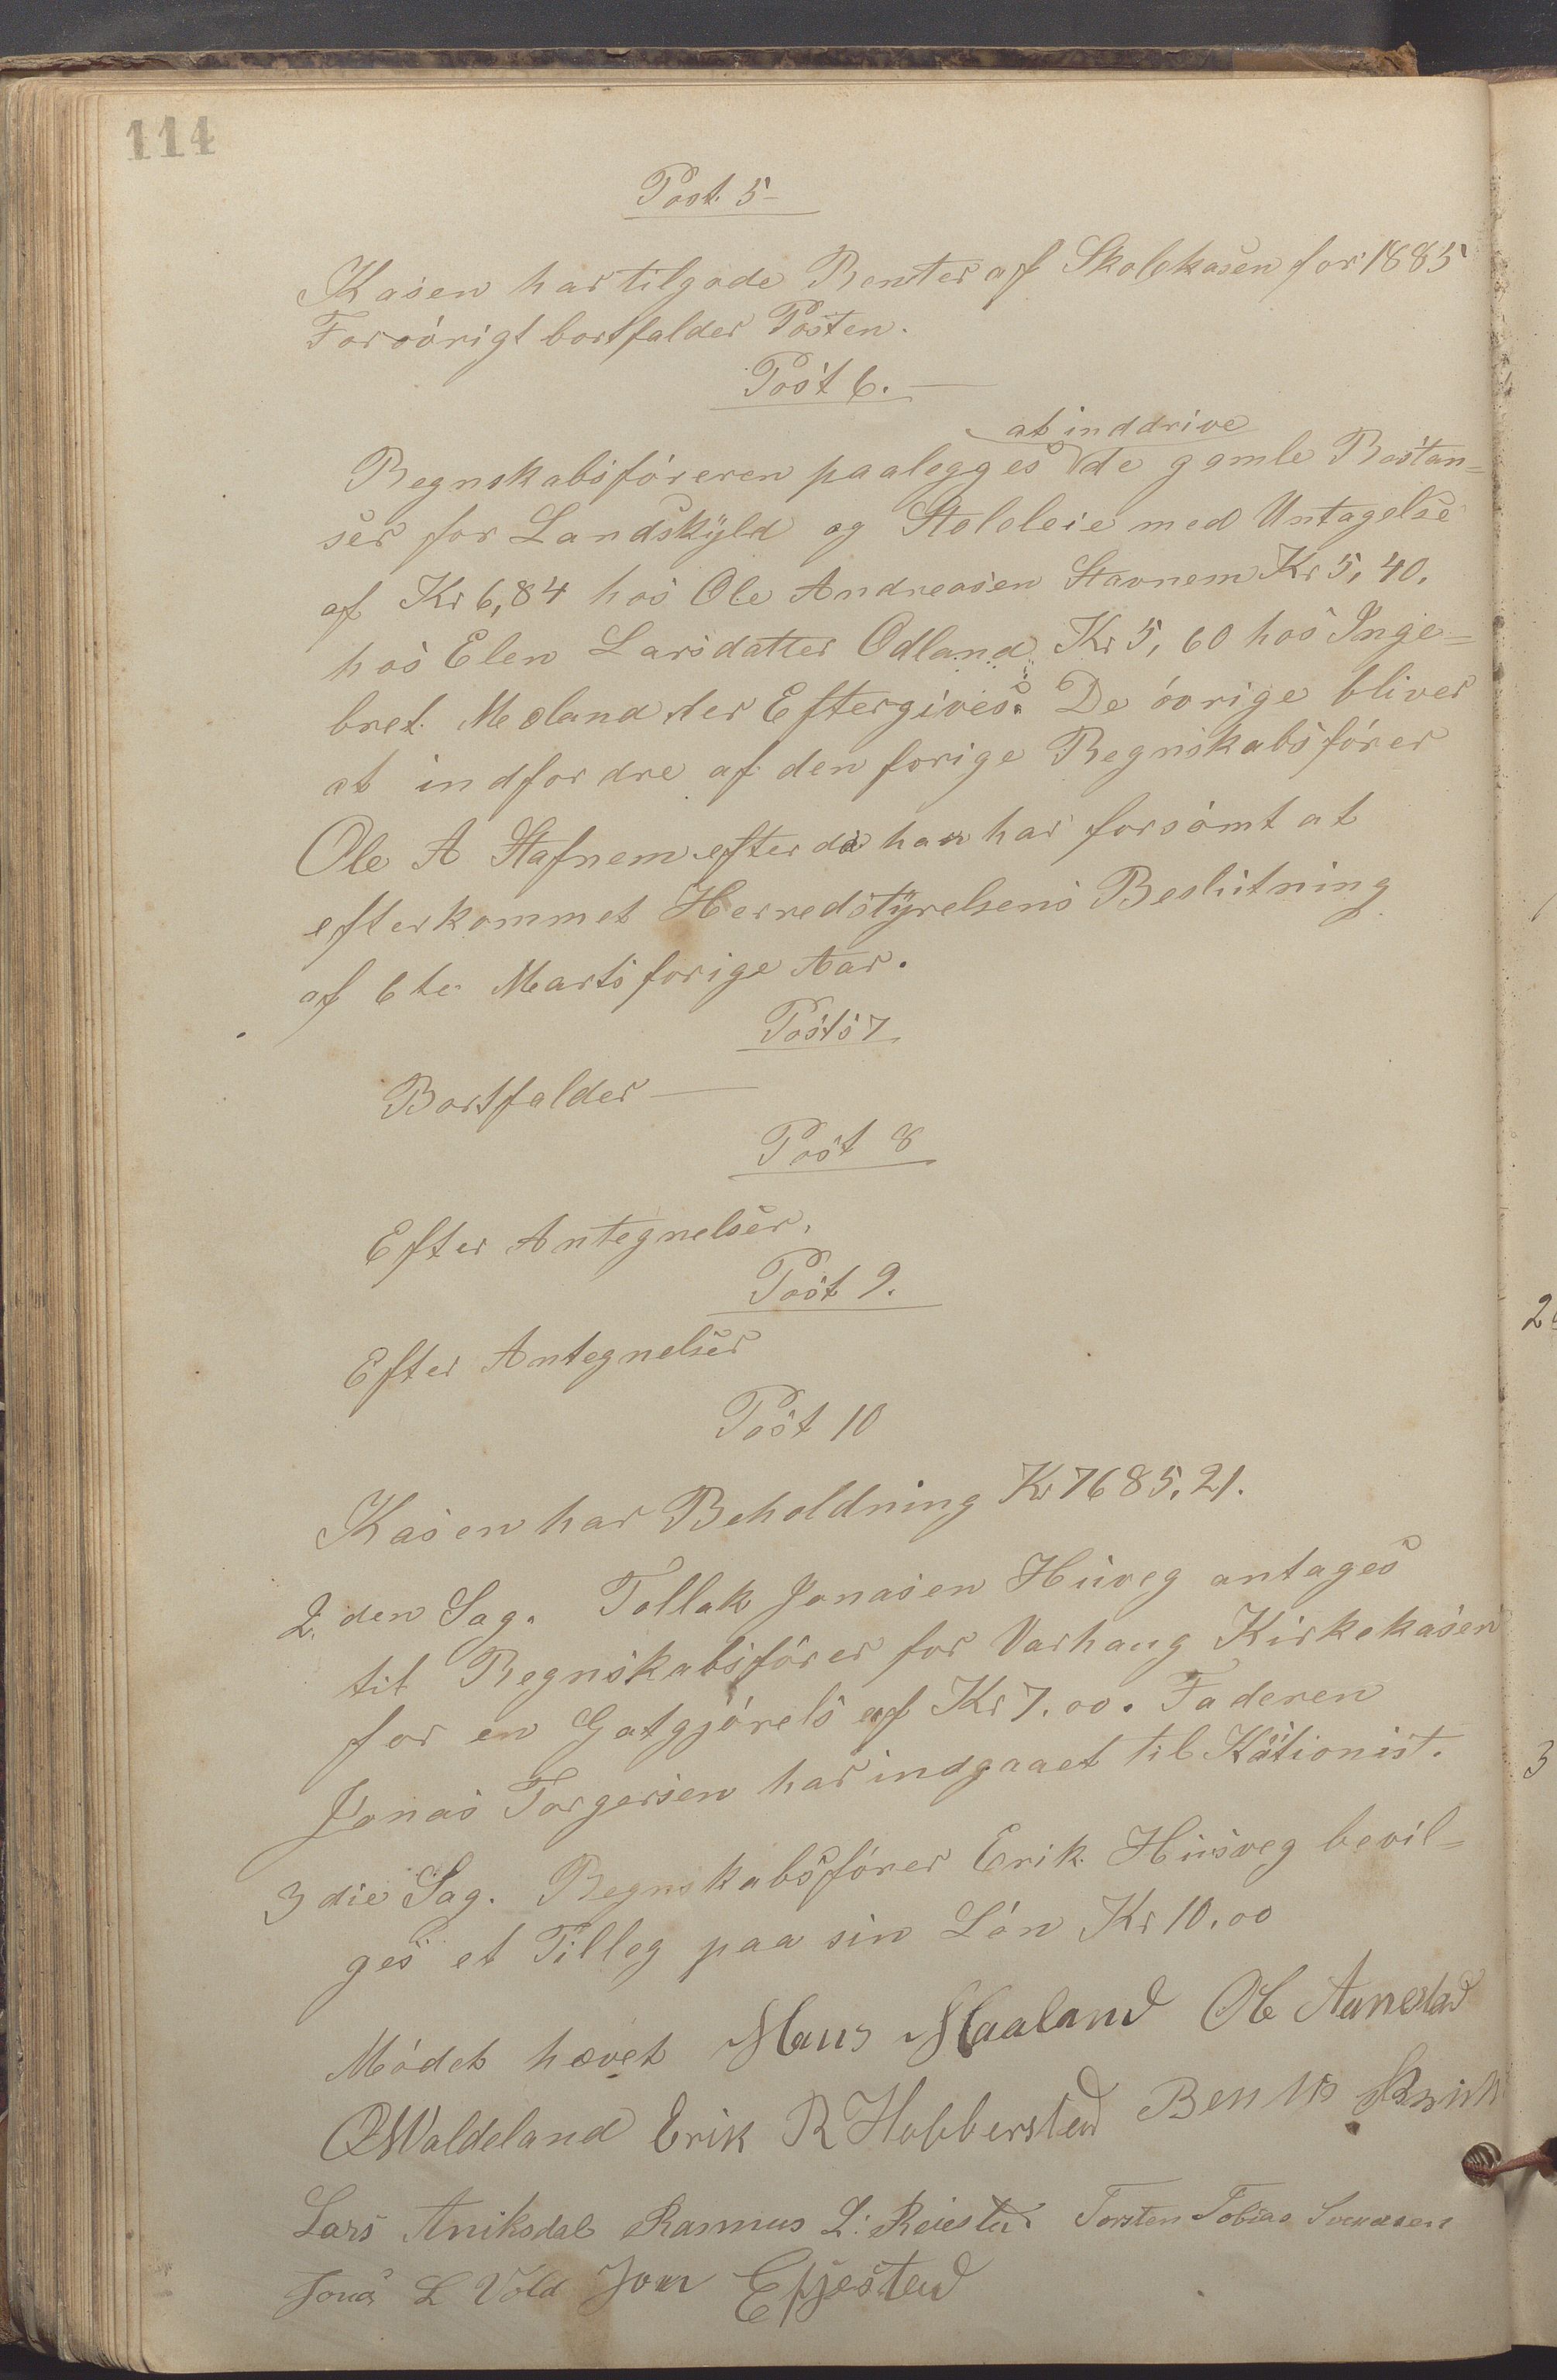 114
Post. 5
Kasen har tilgode Renter af Skolekasen for 1885
Forøvrigt bortfalder Posten.
Post 6.
at inddrive
Regnskabsföreren paalegges de gamle Restan=
ser for Landskÿld og Stololeie med Untagelse
af Kr 6,84 hos Ole Andreasen Stavnem Kr 5,40.
hos Elen Larsdatter Odland Kr 5,60 hos Inge=
bret Meland der Eftergives. De övrige bliver
at indfordre af den forige Regnskabsförer
Ole A Stafnem efter da han har forsömt at
efterkommet Herredstÿrelsens Beslutning
af 6te Marts forige Aar.
Posts 7
Bortfalder
Post 8
Efter Antegnelser.
Post 9.
Efter Antegnelser
Post 10
Kasen har Beholdning Kr 7685,21.
2. den Sag. Tollak Jonasen Huveg antages
til Regnskabsförer for Varhaug Kirkekasen
for en Gotgjörels af Kr 7.00. Faderen
Jonas Torgersen har indgaaet til Kätionist.
3 die Sag. Regnskabsförer Erik Husveg bevil=
ges et Tilleg paa sin Lön Kr 10,00
Mödet hævet Maus Maaland Ole Aanestad
OWaldeland Erik R Hobberstad
Lars Aniksdal Rasmus L: Reiestad Torsten Tobias Svendsen
Jonas L Vold Jon Efjestad